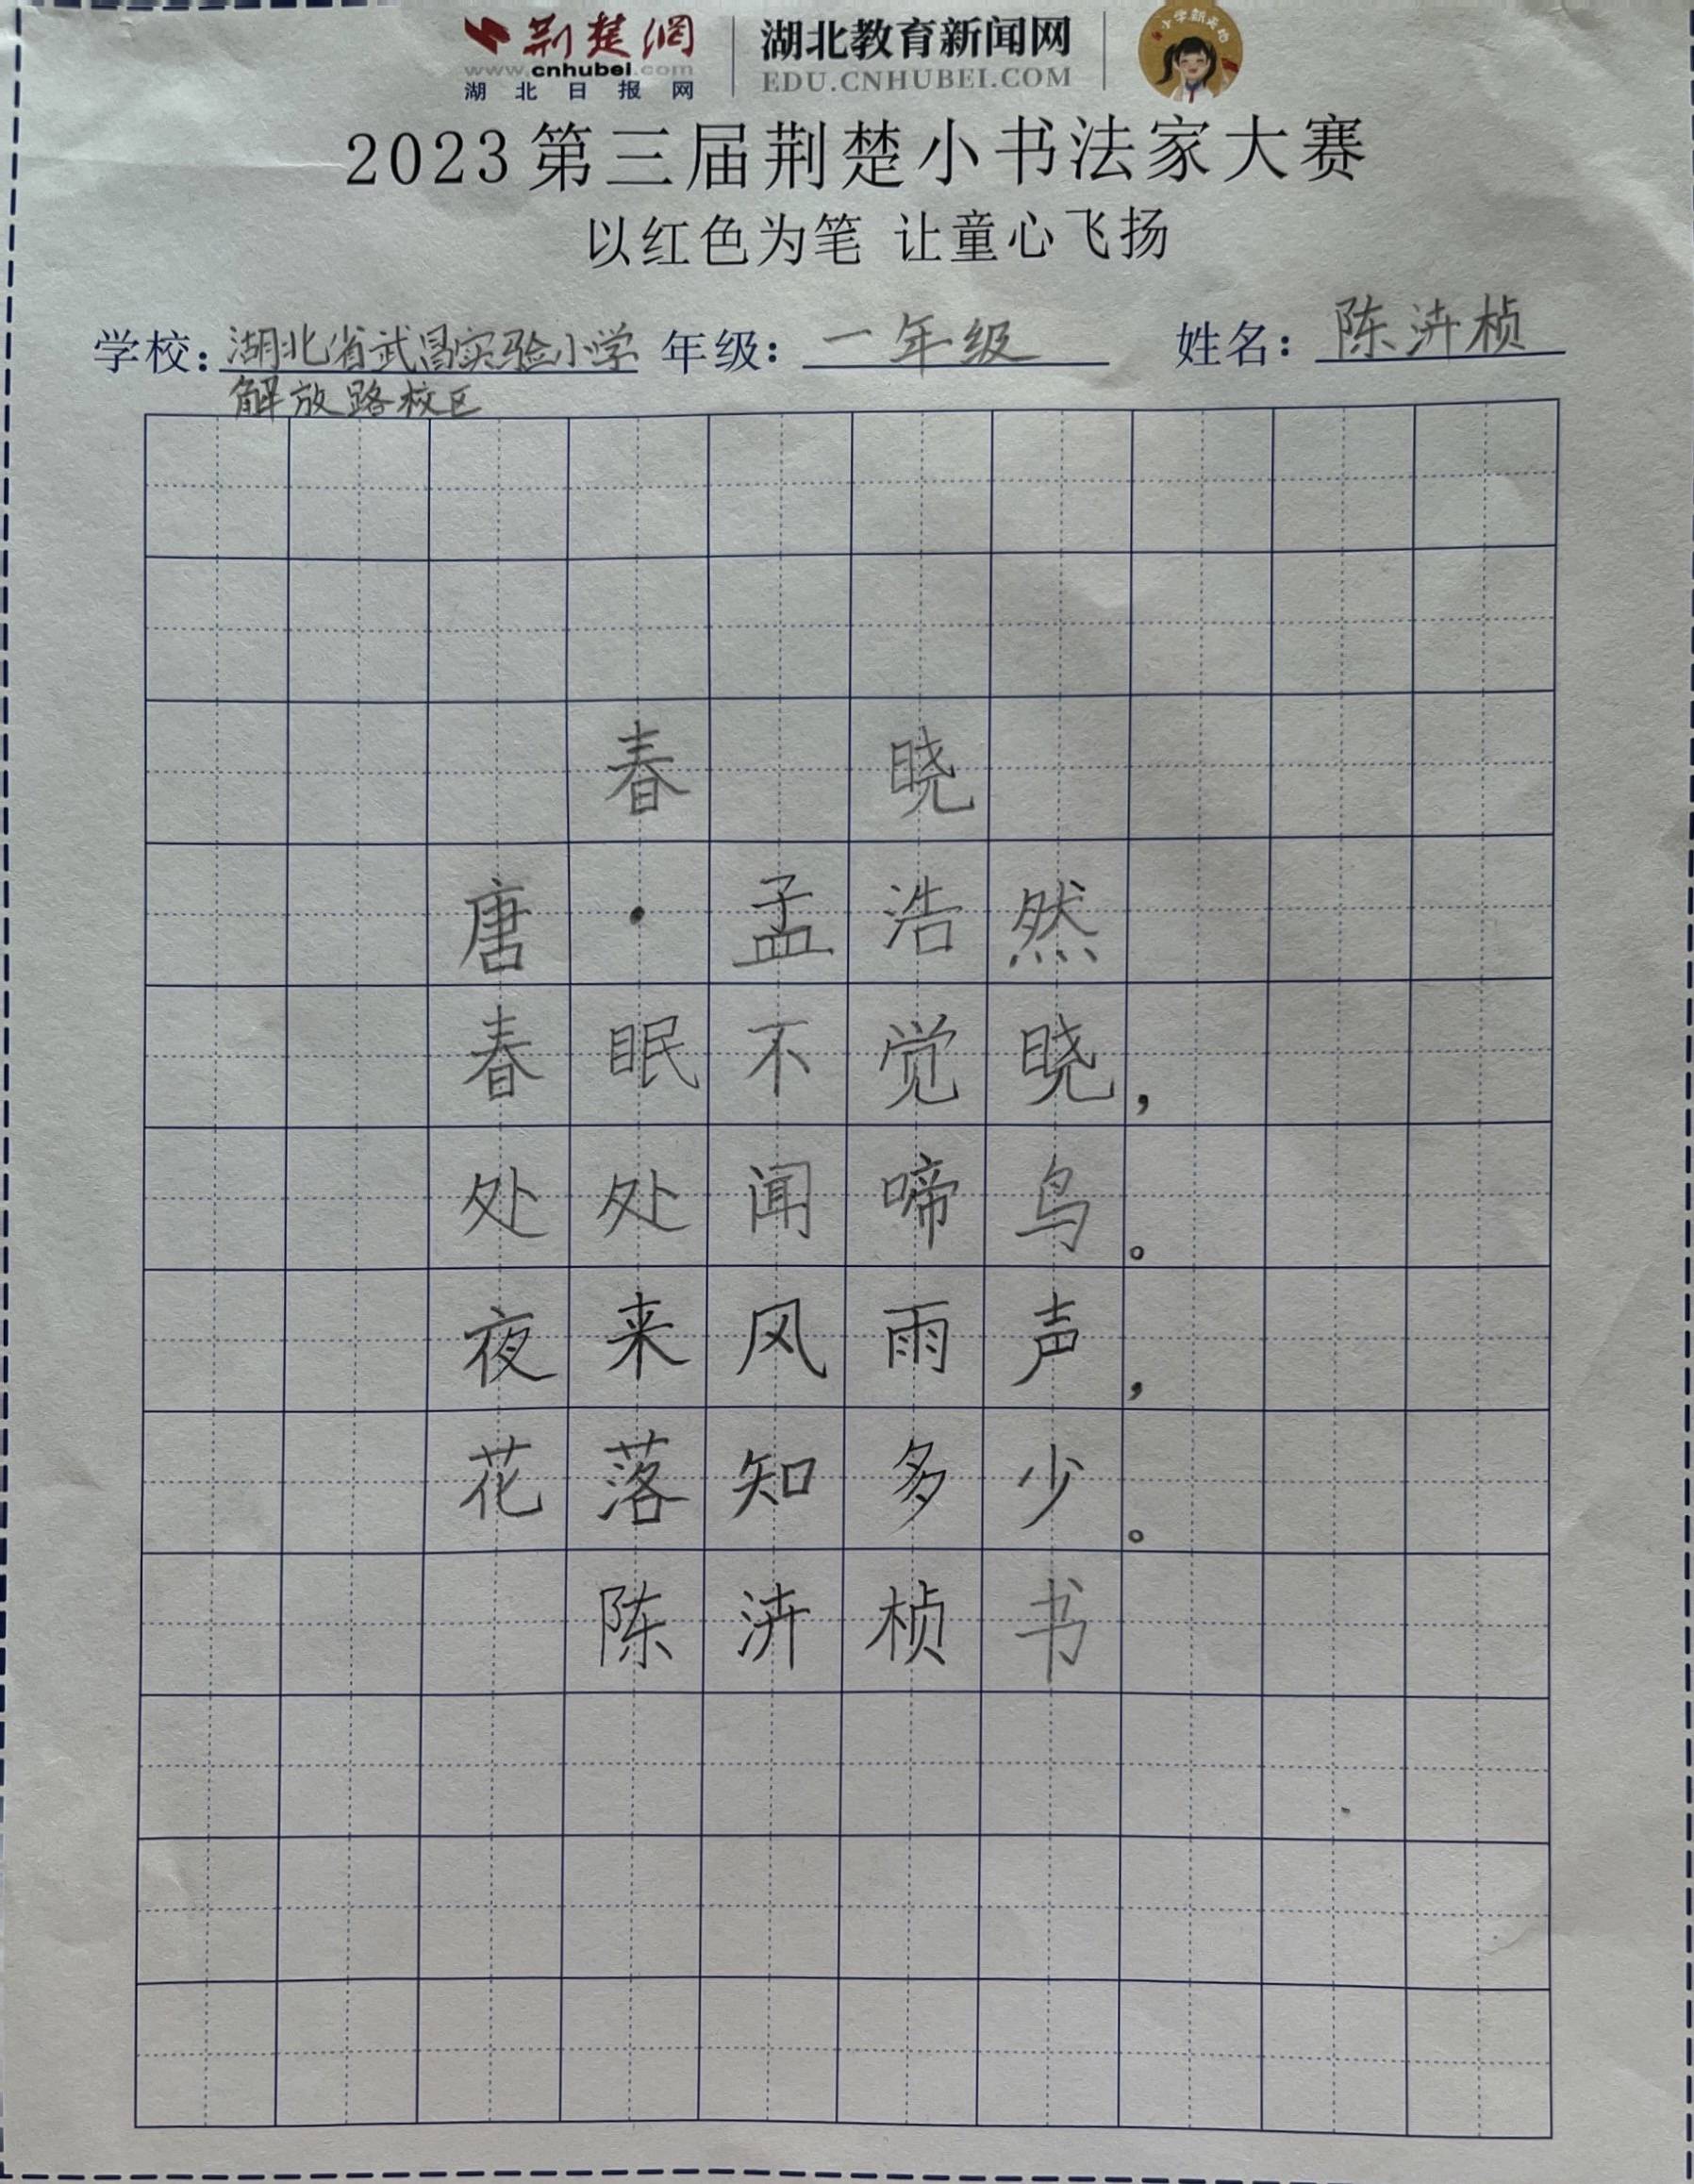 荆楚网 湖北教育新闻网
www.cnhubei.com EDU.CNHUBEI.COM
湖北日报网
2023第三届荆楚小书法家大赛
以红色为笔 让童心飞扬
学校：湖北省武昌实验小学 年级：一年级 姓名：陈汫桢
解放路校区
春 晓
唐·孟浩然
春眠不觉晓，
处处闻啼鸟。
夜来风雨声，
花落知多少。
陈汫桢书